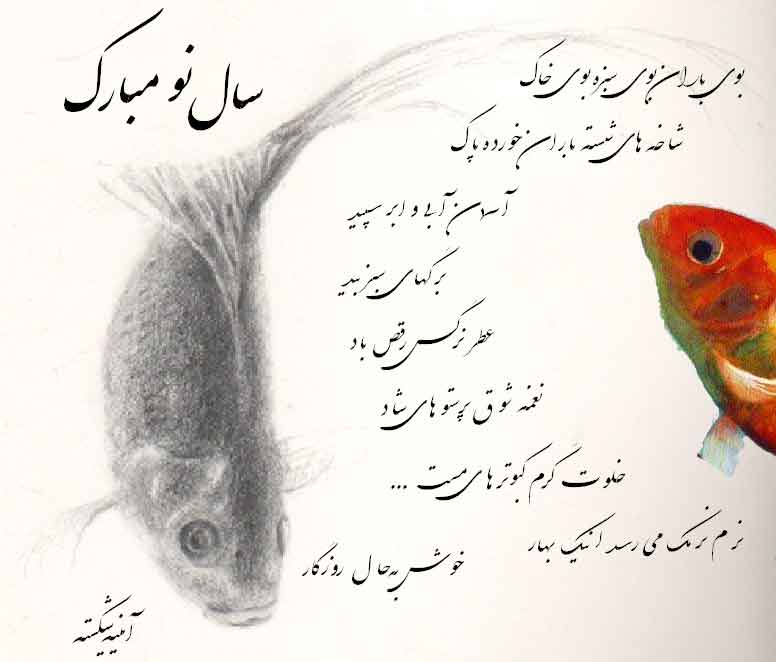 سال نو مبارک
بوی باران بوی سبزه بوی خاک
شاخه های شسته باران خورده پاک
آسمان آبی و ابر سپید
برگهای سبز بید
عطر نرگس رقص باد
نغمه شوق پرستو های شاد
خلوت گرم کبوترهای مست ...
نرم نرمک می رسد اینک بهار
خوش به حال روزگار
آئینه شکسته